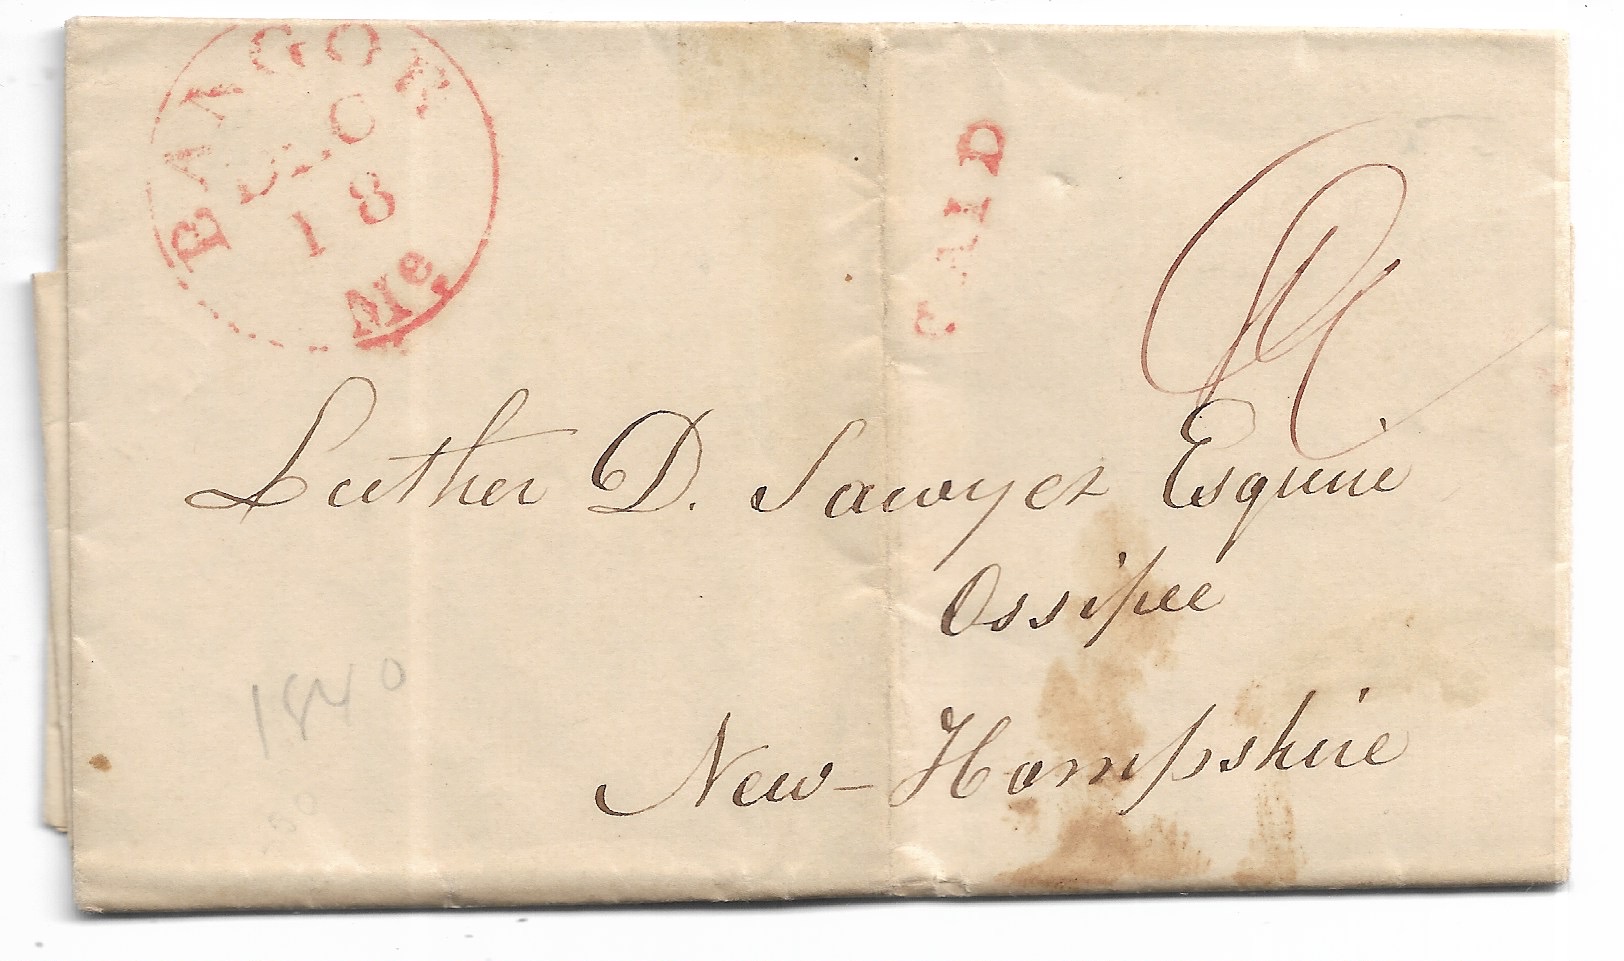 BANGOR
DEC
18
Me.
PAID
Luther D. Sawyer Esquire
Ossipee
New-Hampshire
1840
50